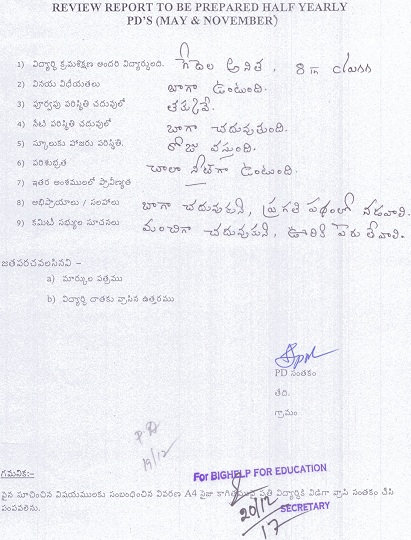 REVIEW REPORT TO BE PREPARED HALF YEARLY
PD'S (MAY & NOVEMBER)
1) విద్యార్థి క్రమశిక్షణ అందరి విద్యార్థులది. గెడెల అనిత, 8 th class
2) వినయ విధేయతలు బాగా ఉంటుంది.
3) పూర్వపు పరిస్థితి చదువులో తక్కువే.
4) నేటి పరిస్థితి చదువులో బాగా చదువుతుంది.
5) స్కూలుకు హాజరు పరిస్థితి. రోజు వస్తుంది.
6) పరిశుభ్రత చాలా నీట్‌గా ఉంటుంది.
7) ఇతర అంశములలో ప్రావీణ్యత
8) అభిప్రాయాలు / సలహాలు బాగా చదువుకుని, ప్రగతి పథంలో నడవాలి.
9) కమిటీ సభ్యుల సూచనలు మంచిగా చదువుకుని, ఊరికి పేరు తేవాలి.
జతపరచవలసినవి –
a) మార్కుల పత్రము
b) విద్యార్థి దాతకు వ్రాసిన ఉత్తరము
PD సంతకం
తేది.
గ్రామం
19/12
గమనిక:-
For BIGHELP FOR EDUCATION
పైన సూచించిన విషయములకు సంబంధించిన వివరణ A4 సైజు కాగితముపై ప్రతి విద్యార్థికి విడిగా వ్రాసి సంతకం చేసి
పంపవలెను.
SECRETARY
20/12
17